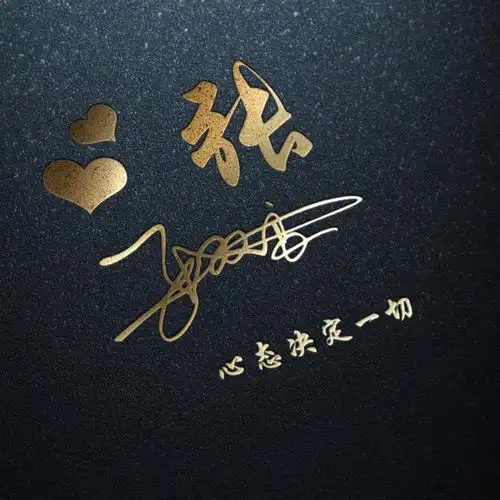 张
心态决定一切